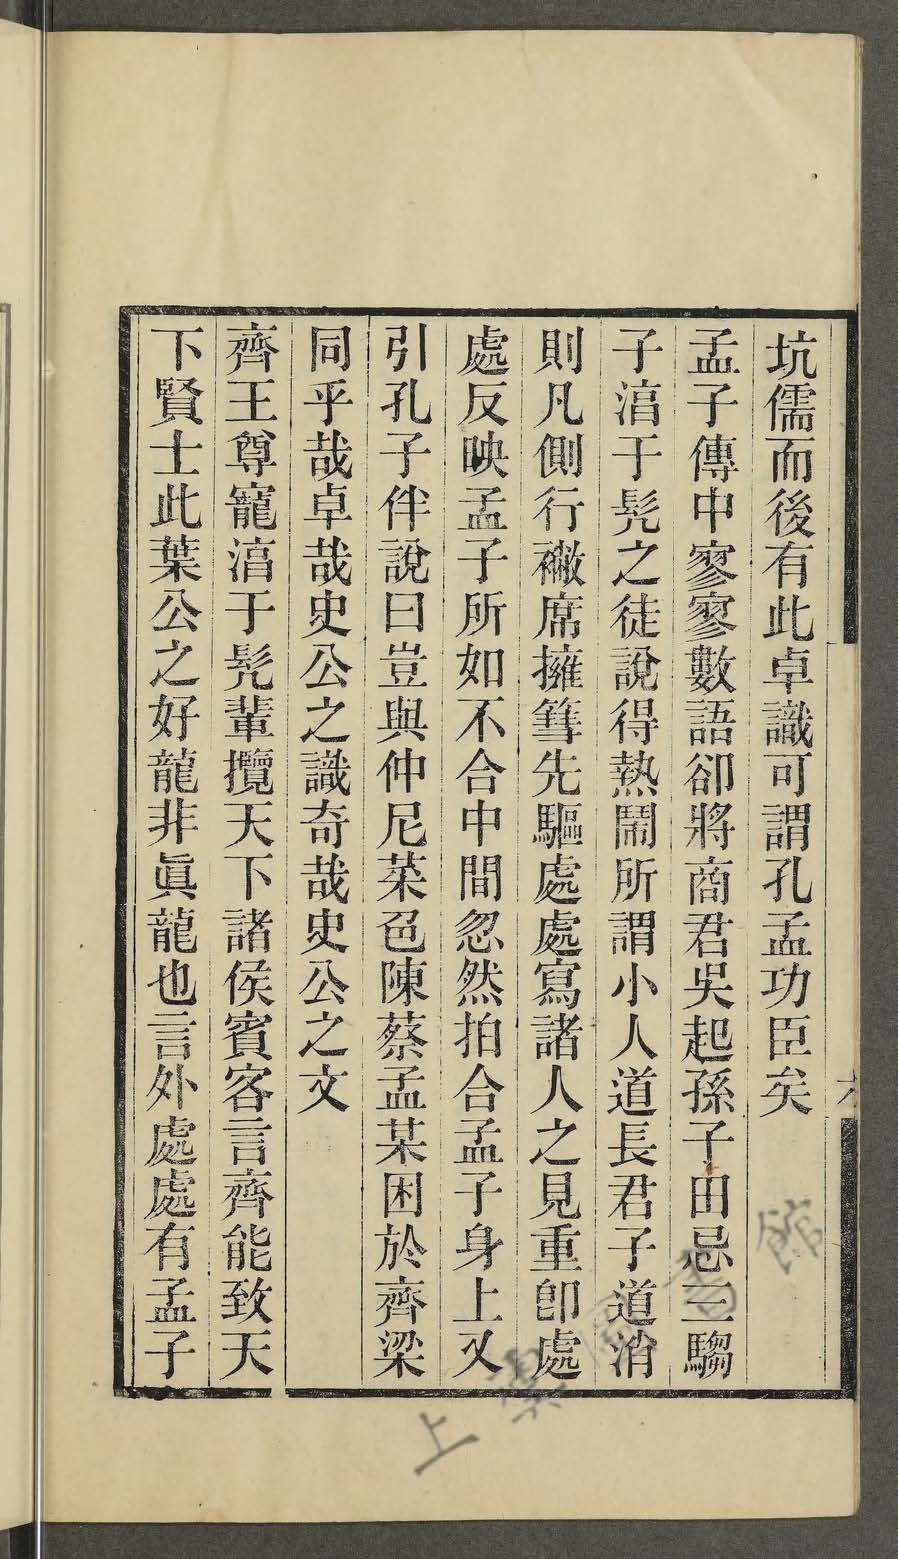 坑儒而後有此卓識可謂孔孟功臣矣
孟子傳中寥寥數語卻將商君吳起孫子田忌三騶
子湻于髡之徒說得熱鬧所謂小人道長君子道消
則凡側行襒席擁篲先驅處處寫諸人之見重卽處
處反映孟子所如不合中間忽然拍合孟子身上又
引孔子伴說曰豈與仲尼菜色陳蔡孟某困於齊梁
同乎哉卓哉史公之識奇哉史公之文
齊王尊寵湻于髡輩攬天下諸侯賓客言齊能致天
下賢士此葉公之好龍非眞龍也言外處處有孟子